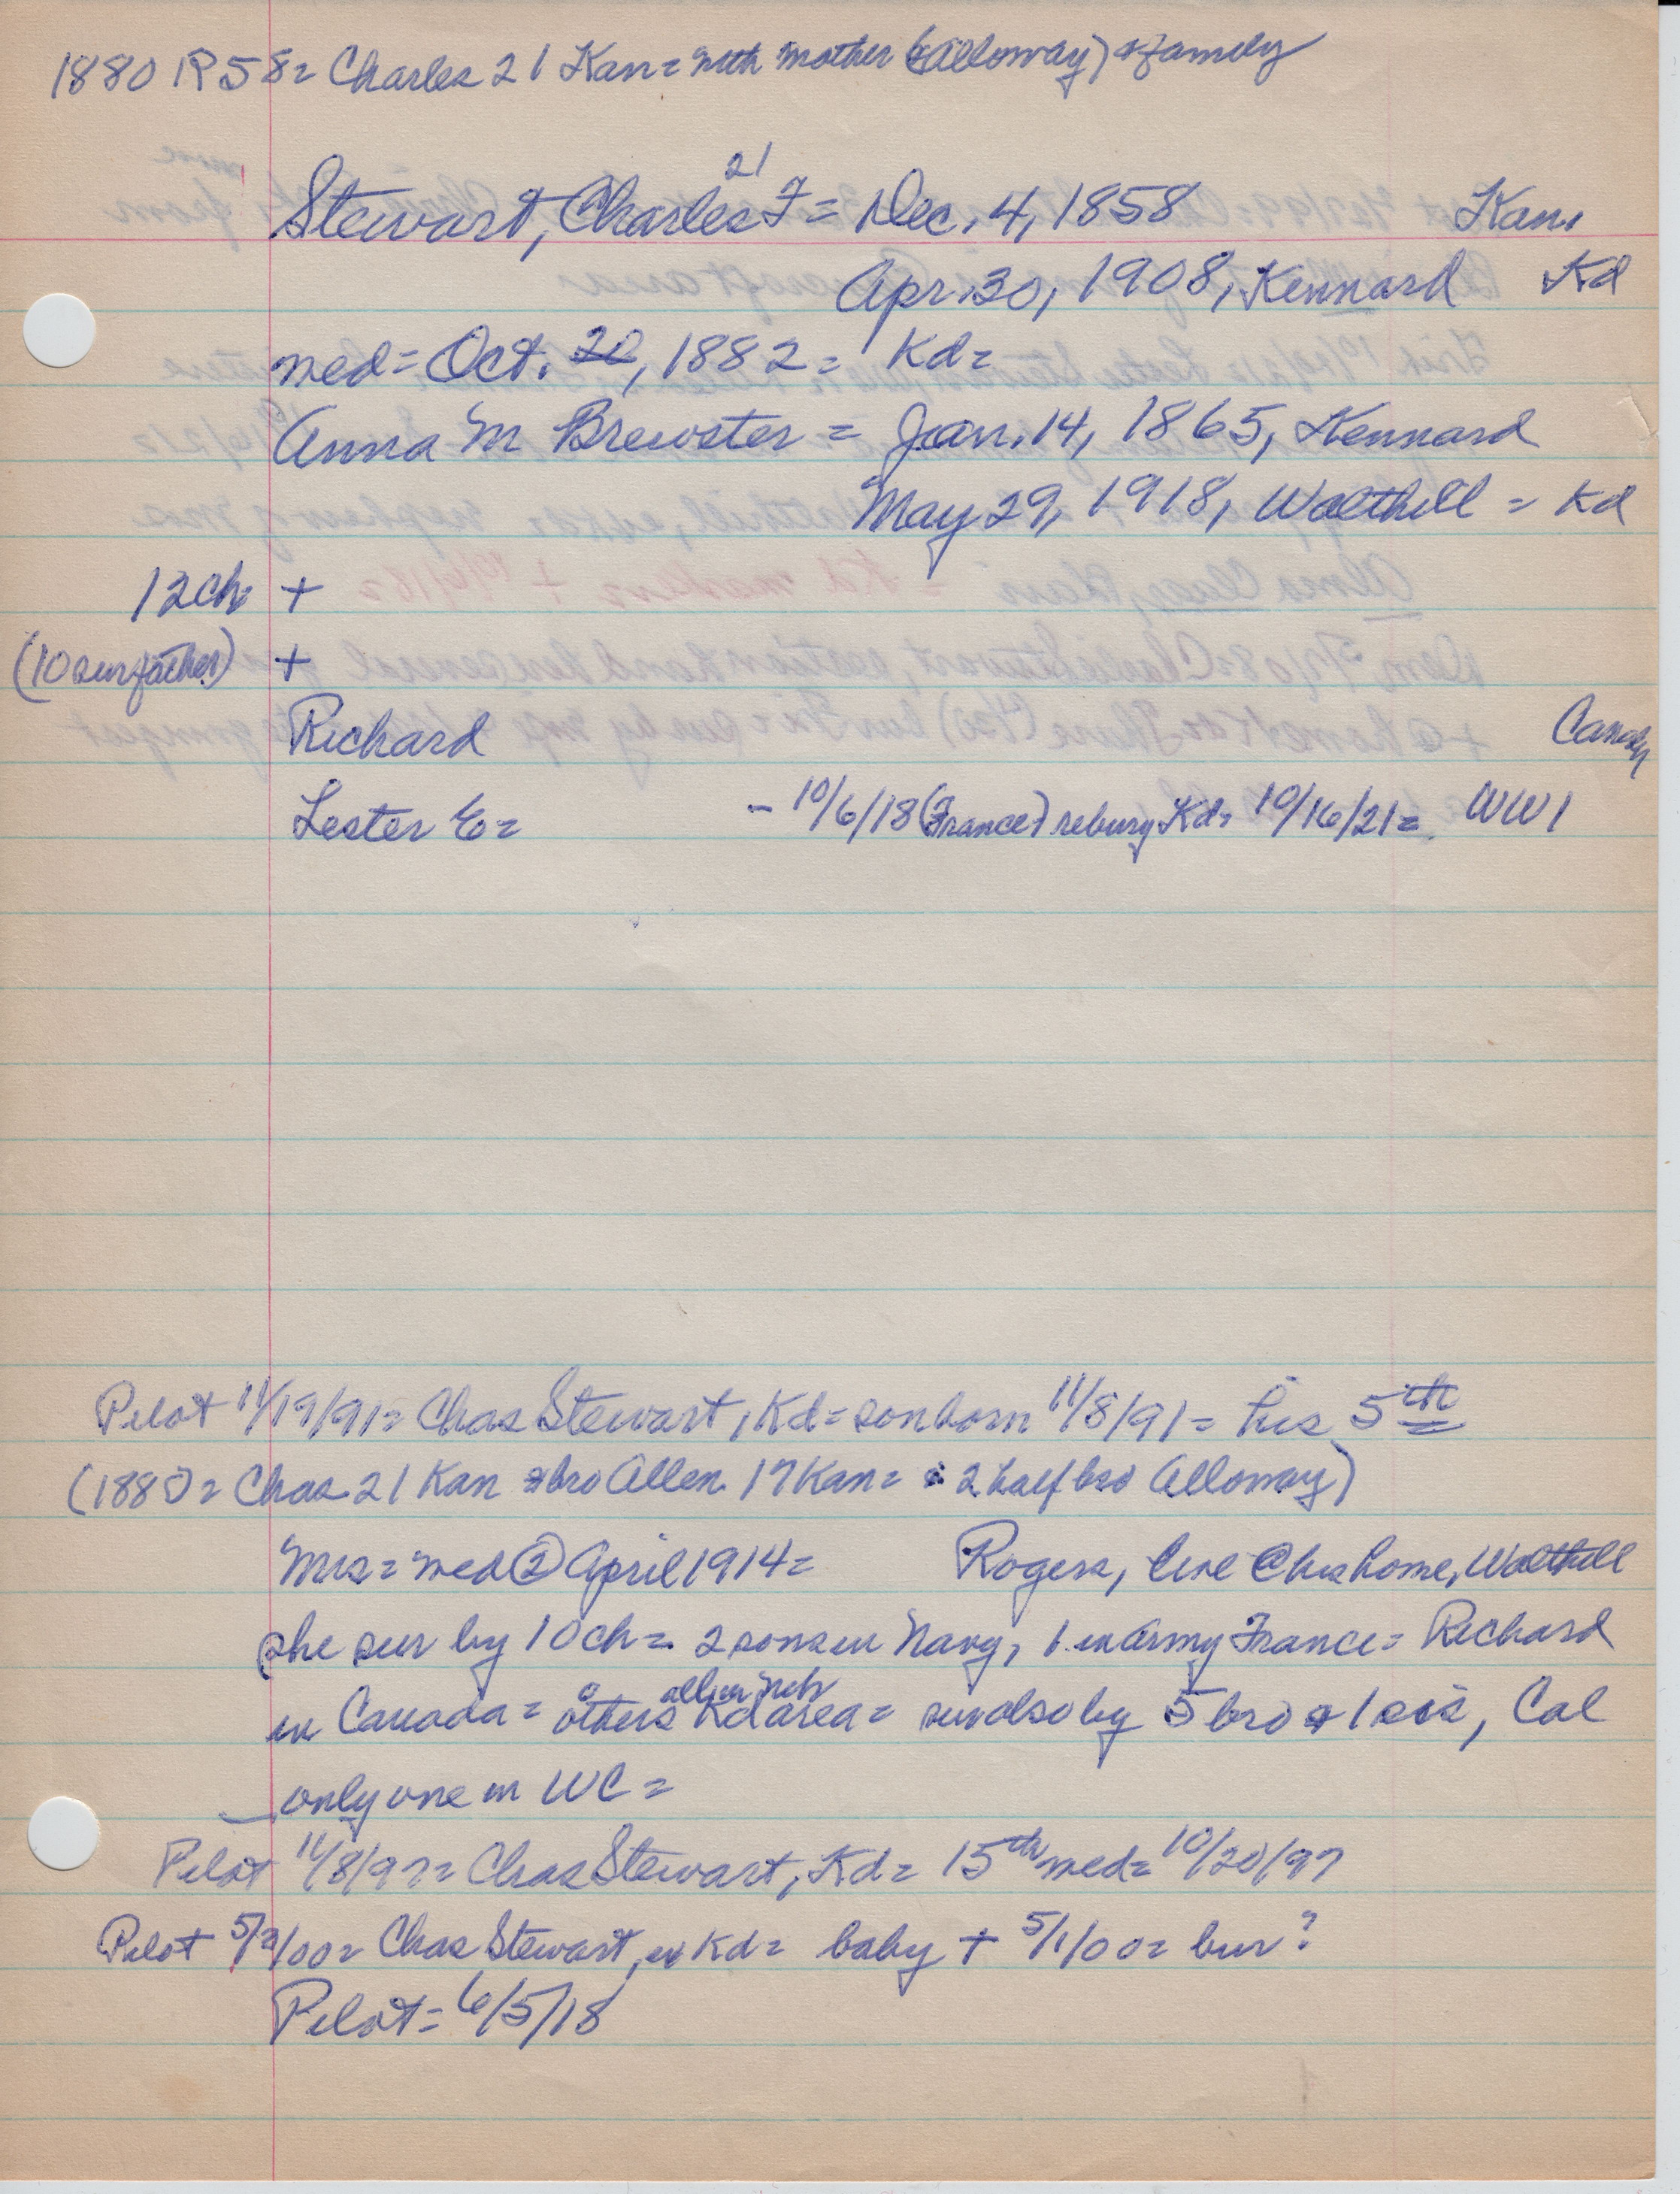 1880 R58= Charles 21 Kan= with mother (Alloway) & family
21
Stewart, Charles F = Dec. 4, 1858 Kan.
Apr. 30, 1908, Kennard Kd
med= Oct. 20, 1882= Kd=
Anna M Brewster = Jan. 14, 1865, Kennard
May 29, 1918, Walthill = Kd
12ch +
(10 sur father) +
Richard Canada
Lester E= - 10/6/18 (France) rebury Kd= 10/16/21= WW1
Pilot 11/19/91= Chas Stewart, Kd= son born 11/8/91= his 5th
(1880= Chas 21 Kan & bro Allen 17 Kan= & 2 half bro Alloway)
Mrs= med ② April 1914= Rogers, live @ his home, Walthill
she sur by 10 ch= 2 sons in Navy, 1 in army France= Richard
in Canada= others Kd area= sur also by 5 bro & 1 sis, Cal
all in Neb
only one in WC=
Pilot 11/8/97= Chas Stewart, Kd= 15th med= 10/20/97
Pilot 5/2/00= Chas Stewart, in Kd= baby + 5/1/00= bur?
Pilot= 6/5/18